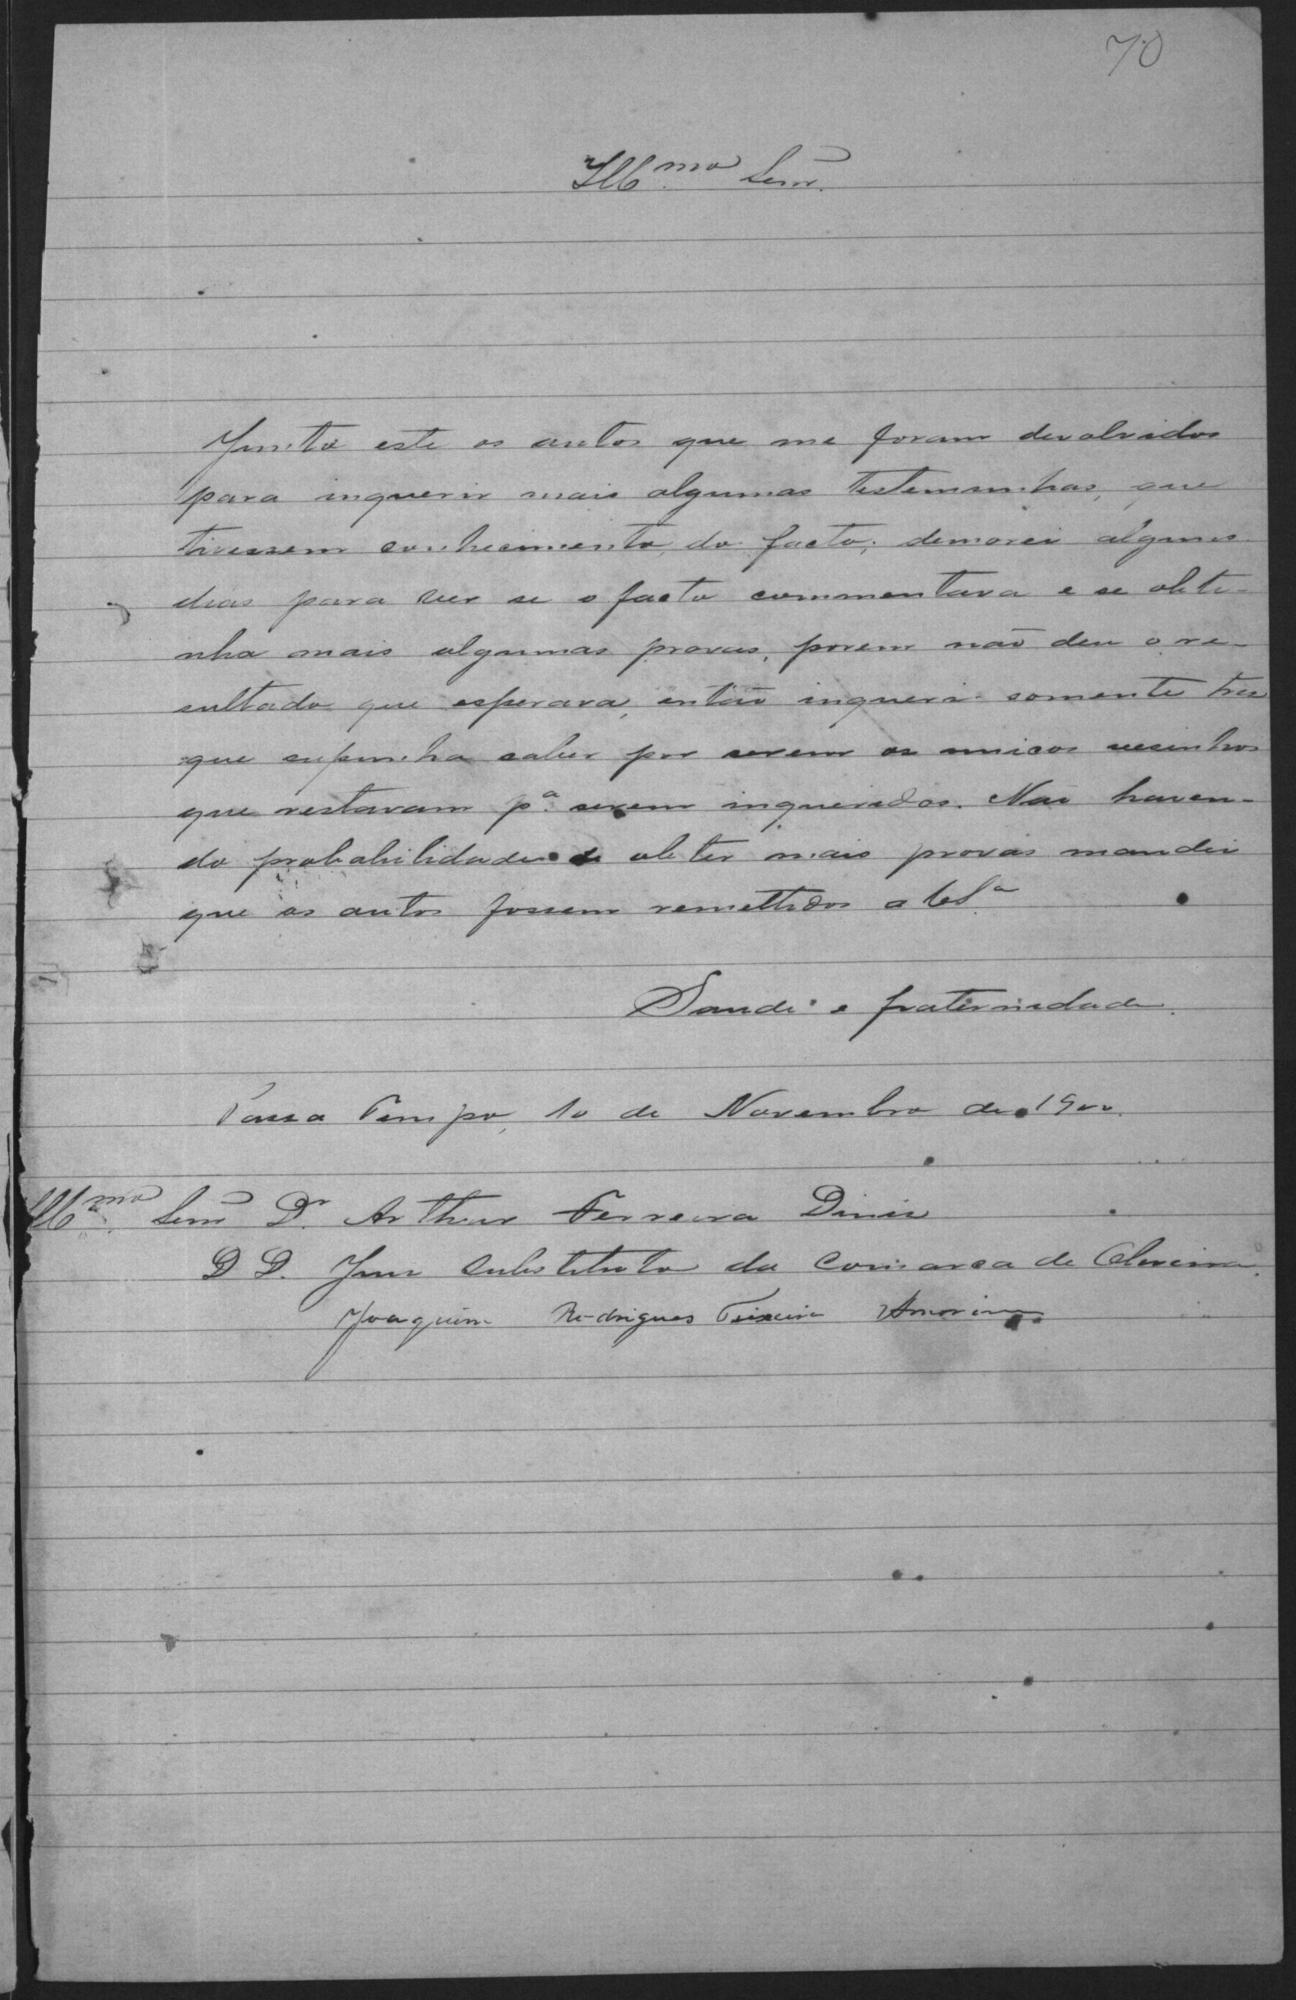 70
Illmo Senr.
Junto este os autos que me foram devolvidos
para inquerir mais algumas testemunhas, que
tivessem conhecimento do facto; demorei alguns
dias para ver se o facto commentava e se obti-
nha mais algumas provas, porem não deu o re-
sultado que esperava, então inqueri somente tres
que supunha saber por serem os unicos vesinhos
que restavam pa. serem inqueridos. Não haven-
do probabilidade de obter mais provas mandei
que os autos fossem remettidos a
Saude e fraternidade.
Passa Tempo, 10 de Novembro de 1900.
Illmo Senr Dr Arthur Ferreira Diniz
D D. Juiz Substituto da Comarca de Oliveira.
Joaquim Rodrigues Teixeira Amorim